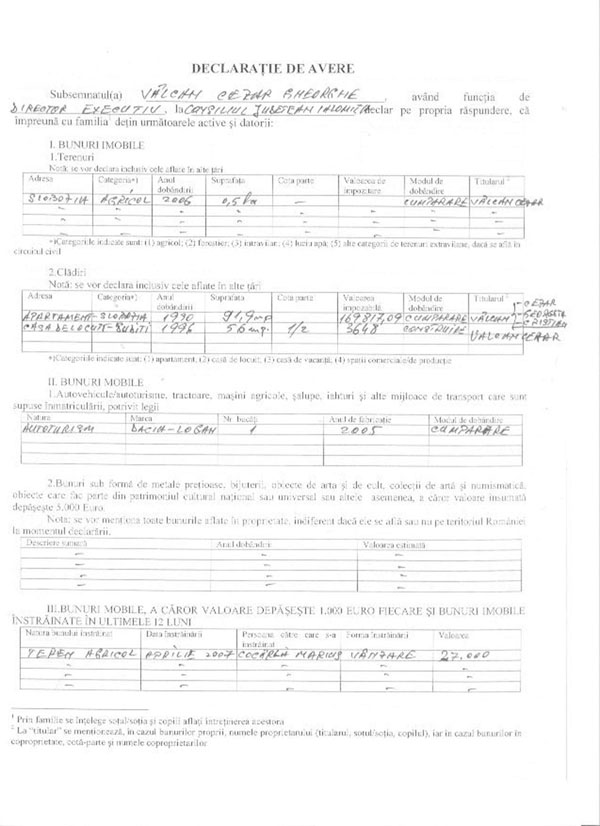 DECLARAȚIE DE AVERE
Subsemnatul(a) VÂLCAN CEZAR GHEORGHE, având funcția de
DIRECTOR EXECUTIV, la CONSILIUL JUDEȚEAN IALOMIȚA declar pe propria răspundere, că
împreună cu familia¹ dețin următoarele active și datorii:
I. BUNURI IMOBILE
1.Terenuri
Notă: se vor declara inclusiv cele aflate în alte țări
Adresa Categoria*) Anul dobândirii Suprafața Cota parte Valoarea de impozitare Modul de dobândire Titularul²
SLOBOZIA AGRICOL 2006 0,5 ha – CUMPARARE VÂLCAN CEZAR
*)Categoriile indicate sunt: (1) agricol; (2) forestier; (3) intravilan; (4) luciu apă; (5) alte categorii de terenuri extravilane, dacă se află în
circuitul civil
2.Clădiri
Notă: se vor declara inclusiv cele aflate în alte țări
Adresa Categoria*) Anul dobândirii Suprafața Cota parte Valoarea impozabilă Modul de dobândire Titularul²
APARTAMENT-SLOBOZIA 1990 91,9 mp 169817,09 CUMPARARE VÂLCAN CEZAR
GEORGETA
CRISTIAN
CASA DE LOCUIT- 1996 56 mp. 1/2 3648 CONSTRUIRE VALCAN CEZAR
*)Categoriile indicate sunt: (1) apartament, (2) casă de locuit, (3) casă de vacanță, (4) spații comerciale/de producție
II. BUNURI MOBILE
1.Autovehicule/autoturisme, tractoare, mașini agricole, șalupe, iahturi și alte mijloace de transport care sunt
supuse înmatriculării, potrivit legii
Natura Marca Nr. bucăți Anul de fabricație Modul de dobândire
AUTOTURISM DACIA-LOGAN 1 2005 CUMPARARE
2.Bunuri sub formă de metale prețioase, bijuterii, obiecte de artă și de cult, colecții de artă și numismatică,
obiecte care fac parte din patrimoniul cultural național sau universal sau altele asemenea, a căror valoare însumată
depășește 5.000 Euro.
Notă: se vor menționa toate bunurile aflate în proprietate, indiferent dacă ele se află sau nu pe teritoriul României
la momentul declarării.
Descriere sumară Anul dobândirii Valoarea estimată
III.BUNURI MOBILE, A CĂROR VALOARE DEPĂȘEȘTE 1.000 EURO FIECARE ȘI BUNURI IMOBILE
ÎNSTRĂINATE ÎN ULTIMELE 12 LUNI
Natura bunului înstrăinat Data înstrăinării Persoana către care s-a înstrăinat Forma înstrăinării Valoarea
TEREN AGRICOL APRILIE 2007 COCÂRLA MARIUS VÂNZARE 27.000
¹ Prin familie se înțelege soțul/soția și copiii aflați întreținerea acestora
² La "titular" se menționează, în cazul bunurilor proprii, numele proprietarului (titularul, soțul/soția, copilul), iar în cazul bunurilor în
coproprietate, cotă-parte și numele coproprietarilor